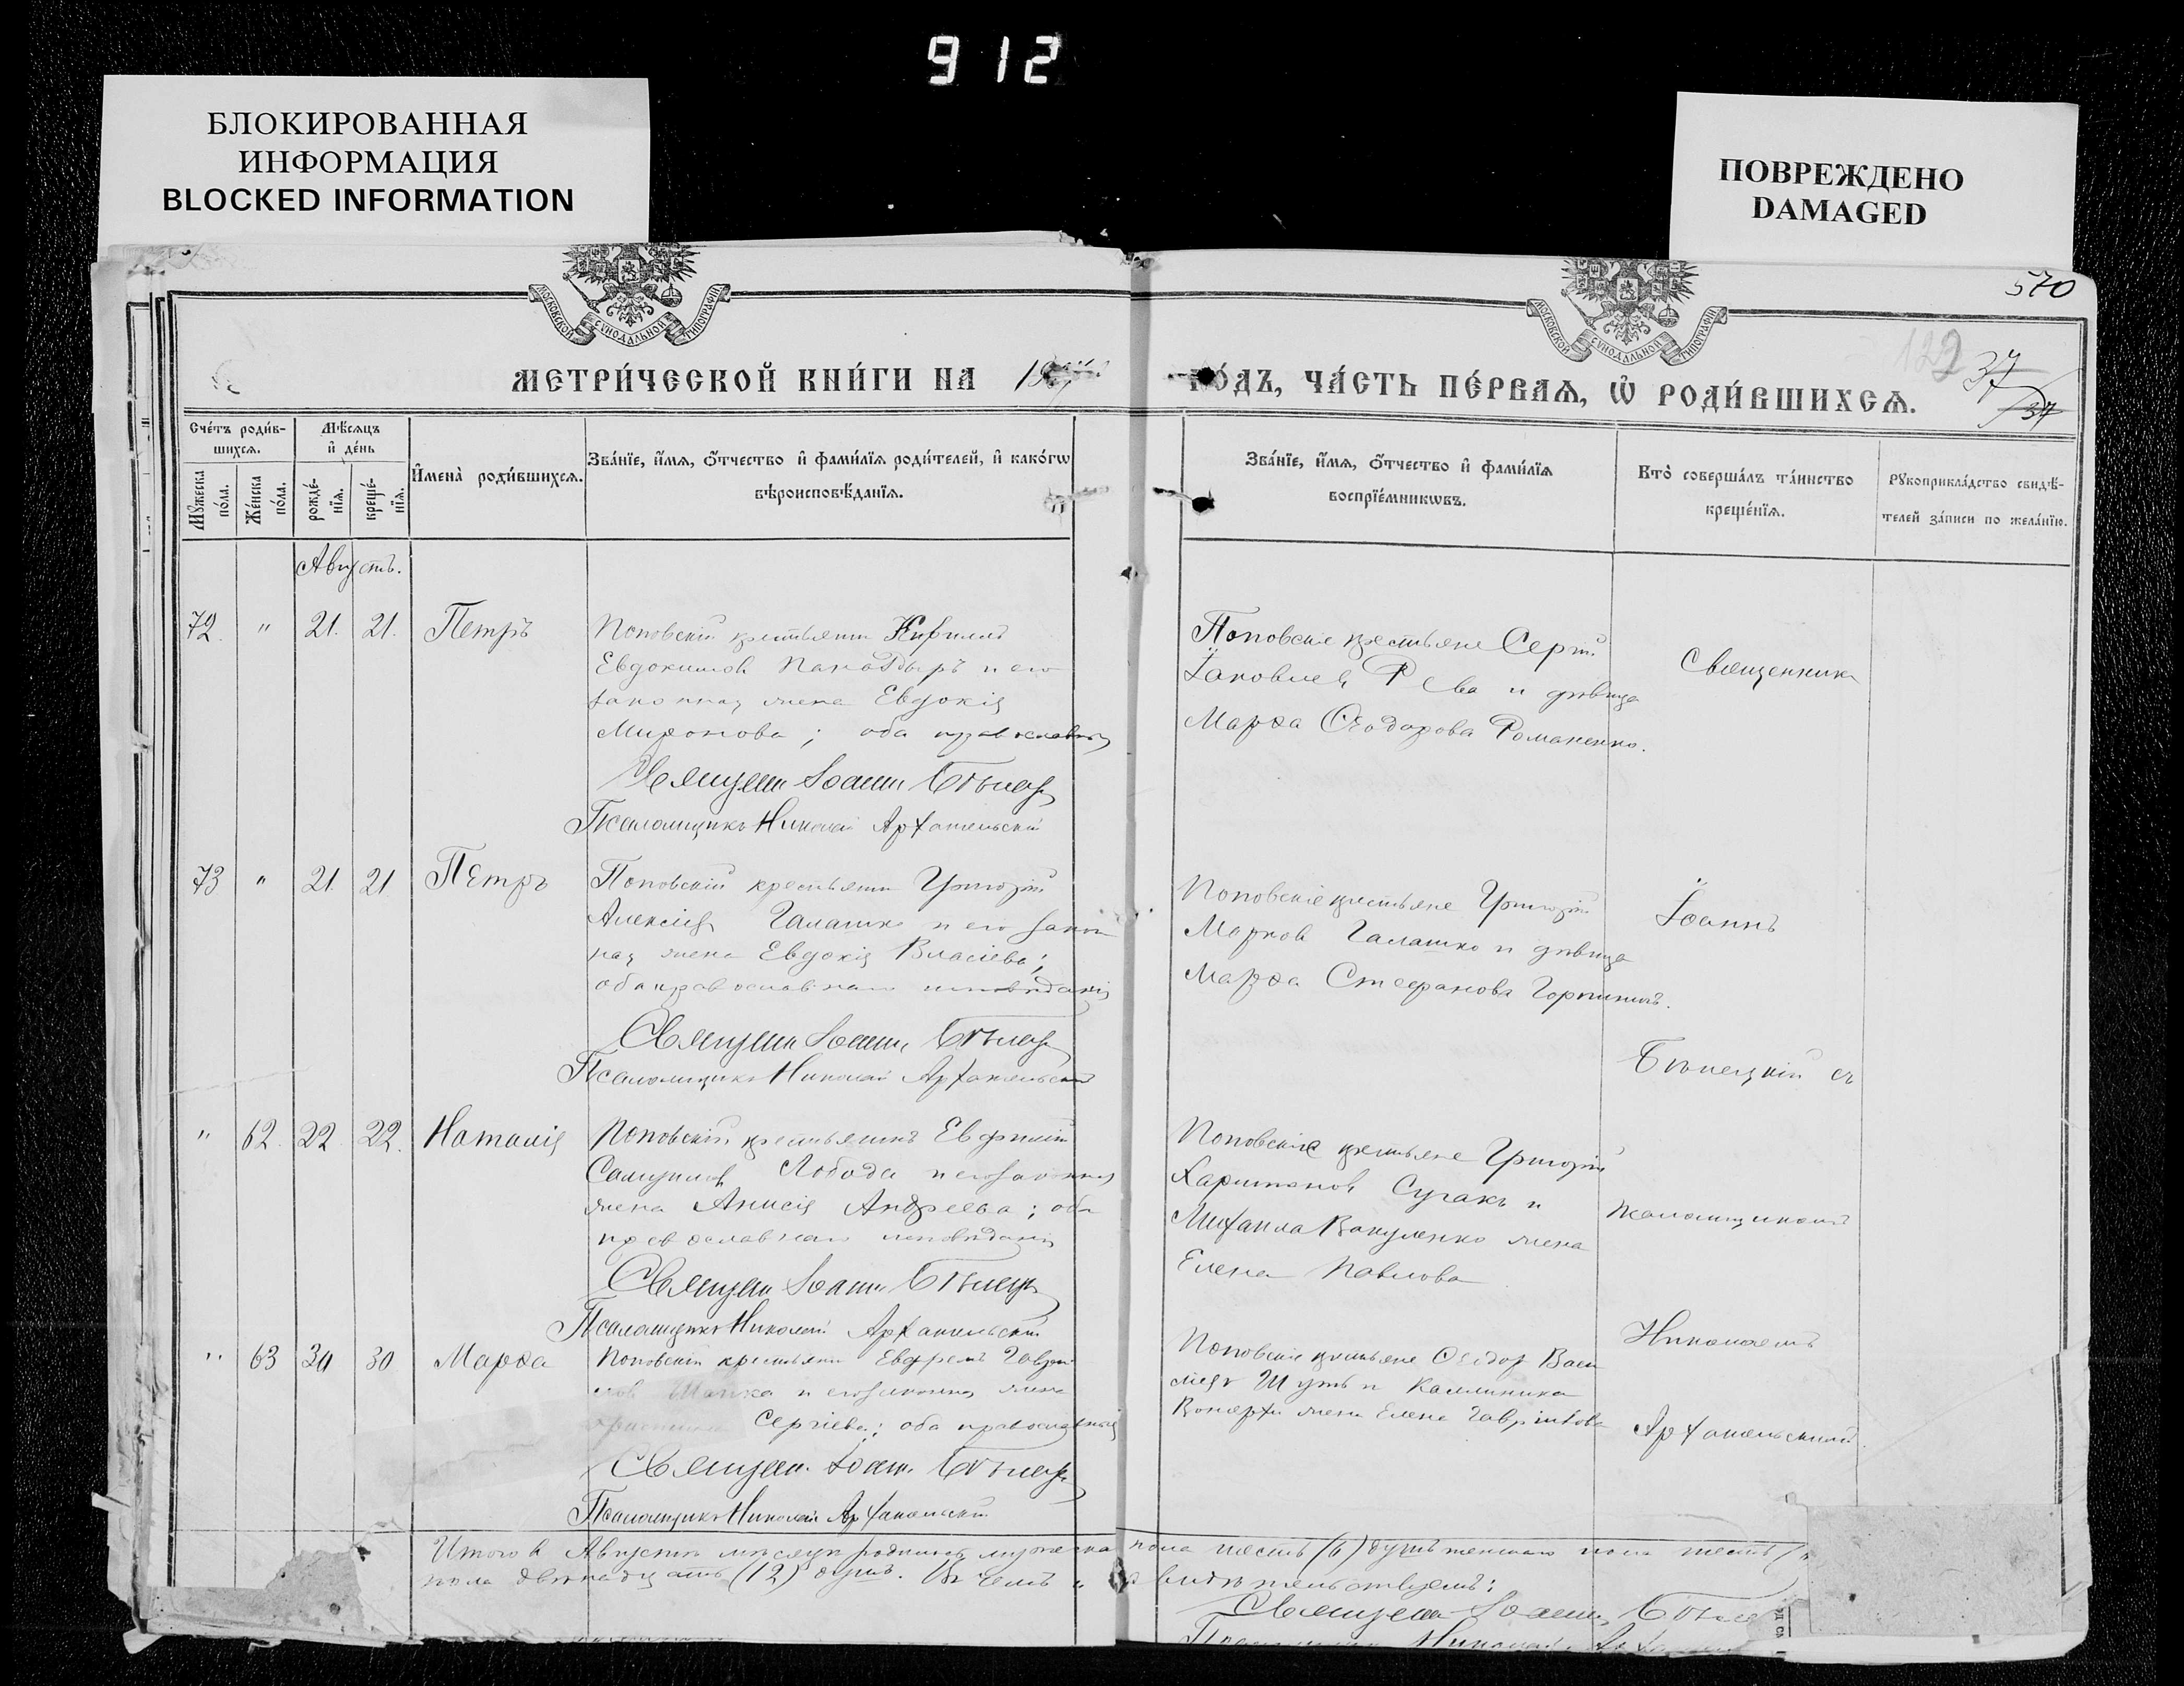 912
БЛОКИРОВАННАЯ
ИНФОРМАЦИЯ
BLOCKED INFORMATION
ПОВРЕЖДЕНО
DAMAGED
МОСКОВСКОЙ СѴНОДАЛЬНОЙ ТИПОГРАФІИ
МОСКОВСКОЙ СѴНОДАЛЬНОЙ ТИПОГРАФІИ
570
122
37
37
МЕТРИ́ЧЕСКОЙ КНИ́ГИ НА
ГО́ДЪ, ЧА́СТЬ ПЕ́РВАЯ, Ѡ҆ РОДИ́ВШИХСѦ.
Сче́тъ роди́в-
шихсѧ.
Мѣ́сѧцъ
и҆ де́нь
Мꙋ́жеска по́ла.
Же́нска по́ла.
рожде́-нїѧ.
креще́-нїѧ.
И҆мена̀ роди́вшихсѧ.
Зва́нїе, и҆́мѧ, ѻ҆́тчество и҆ фами́лїѧ роди́телей, и҆ како́гѡ
вѣроисповѣ́данїѧ.
Зва́нїе, и҆́мѧ, ѻ҆́тчество и҆ фами́лїѧ
воспрїе́мникѡвъ.
Кто̀ соверша́лъ та́инство
креще́нїѧ.
Рꙋкоприкла́дство свидѣ́-
телей за́писи по жела́нїю.
Августъ.
72. " 21. 21. Петръ
Поповскій крестьянин Кирилъ
Евдокимов и его
законная жена Евдокія
Миронова; оба православныя
Священ. Іоанн Бѣлец
Псаломщикъ Николай Архангельскій
Поповскіе крестьяне Сергій
Іаковлев Рева и дѣвица
Марѳа Ѳеодорова Романенко.
Священникъ
73 " 21. 21 Петръ
Поповскій крестьянин Григорій
Алексіев Галашко и его закон
ная жена Евдокія Власіева;
оба православнаго исповѣданія
Священ. Іоанн Бѣлец
Псаломщикъ Николай Архангельскій
Поповскіе крестьяне Григорій
Марков Галашко и дѣвица
Марѳа Стефанова
Іоаннъ
Бѣлецкій съ
" 62. 22 22. Наталія
Поповскій крестьянинъ Евфимій
Самуилов Лобода и его законная
жена Анисія Андреева; оба
православнаго исповѣданія
Священ. Іоанн Бѣлец
Псаломщикъ Николай Архангельскій
Поповскіе крестьяне Григорій
Харитонов Сугакъ и
Михаила Вакуленко жена
Елена Павлова
псаломщикомъ
Николаемъ
" 63 30 30 Марѳа
Поповскій крестьянин Ефремъ Гаври
лов и его законная жена
Сергіева; оба православныя
Священ. Іоанн Бѣлец
Псаломщикъ Николай Архангельскій
Поповскіе крестьяне Ѳеодор Васи
ліев Шутъ и Каллиника
жена Елена
Архангельскимъ.
Итого в Августѣ мѣсяцѣ родилось мужеска пола шесть (6) душъ женскаго пола шесть
пола двѣнадцать (12) душъ. Въ чемъ и свидѣтельствуемъ:
Священ. Іоанн
Николай